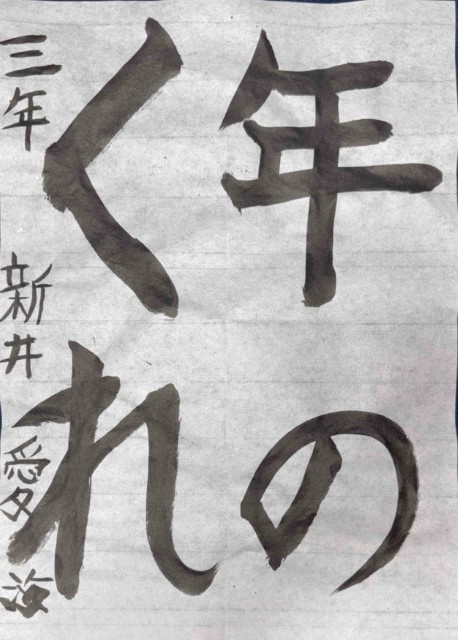 年の
くれ
三年 新井 愛海